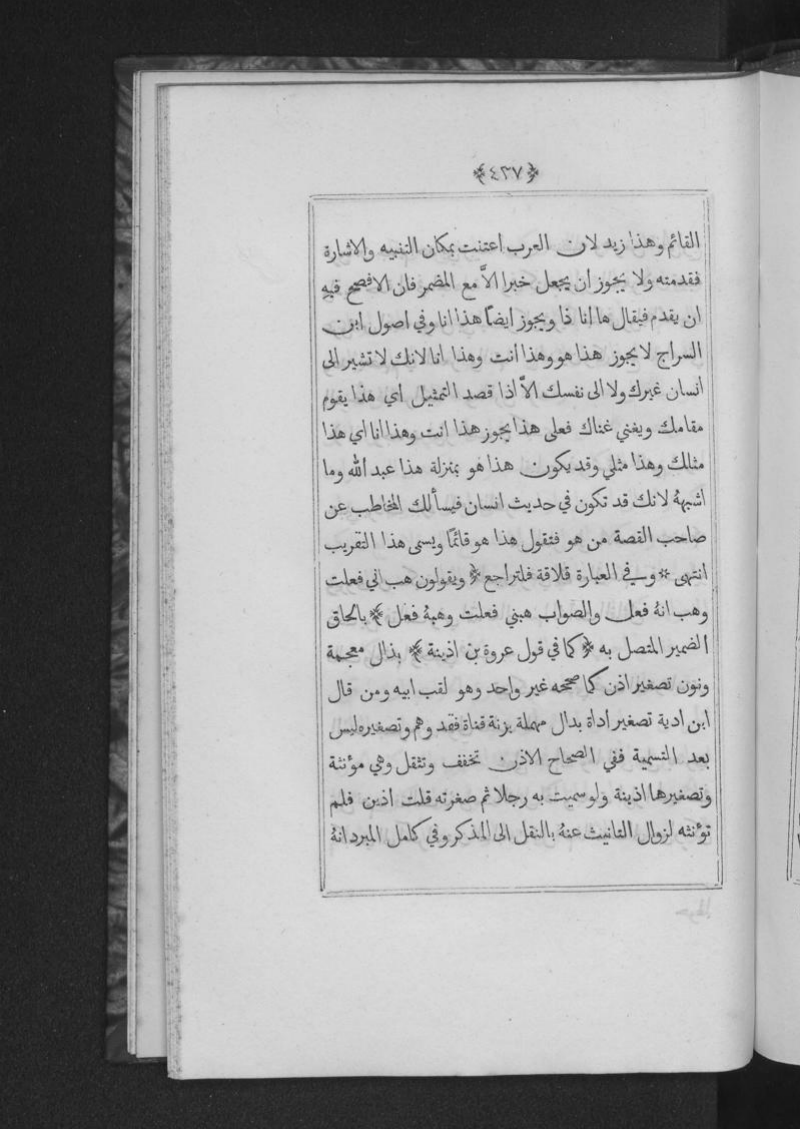 ﴿٤٣٧﴾
القائم وهذا زيد لان العرب اعتنت بمكان التنبيه والاشارة
فقدمته ولا يجوز ان يجعل خبرا الاّ مع المضمر فان الافصح فيه
ان يقدم فيقال ها انا ذا ويجوز ايضاً هذا انا وفي اصول ابن
السراج لا يجوز هذا هو وهذا انت وهذا انا لانك لا تشير الى
انسان غيرك ولا الى نفسك الاّ اذا قصد التمثيل اي هذا يقوم
مقامك ويغني غناك فعلى هذا يجوز هذا انت وهذا انا اي هذا
مثلك وهذا مثلي وقد يكون هذا هو بمنزلة هذا عبد الله وما
اشبههُ لانك قد تكون في حديث انسان فيسألك المخاطب عن
صاحب القصة من هو فتقول هذا هو قائمًا ويسمى هذا التقريب
انتهى * وفي العبارة قلاقة فلتراجع ﴿ ويقولون هب اني فعلت
وهب انهُ فعل والصواب هبني فعلت وهبهُ فعل ﴾ بالحاق
الضمير المتصل به ﴿ كما في قول عروة بن اذينة ﴾ بذال معجمة
ونون تصغير اذن كما صححه غير واحد وهو لقب ابيه ومن قال
ابن ادية تصغير اداة بدال مهملة بزنة قناة فقد وهم وتصغيره ليس
بعد التسمية ففي الصحاح الاذن تخفف وتثقل وهي مؤنثة
وتصغيرها اذينة ولو سميت به رجلا ثم صغرته قلت اذين فلم
تؤنثه لزوال التانيث عنهُ بالنقل الى المذكر وفي كامل المبرد انهُ